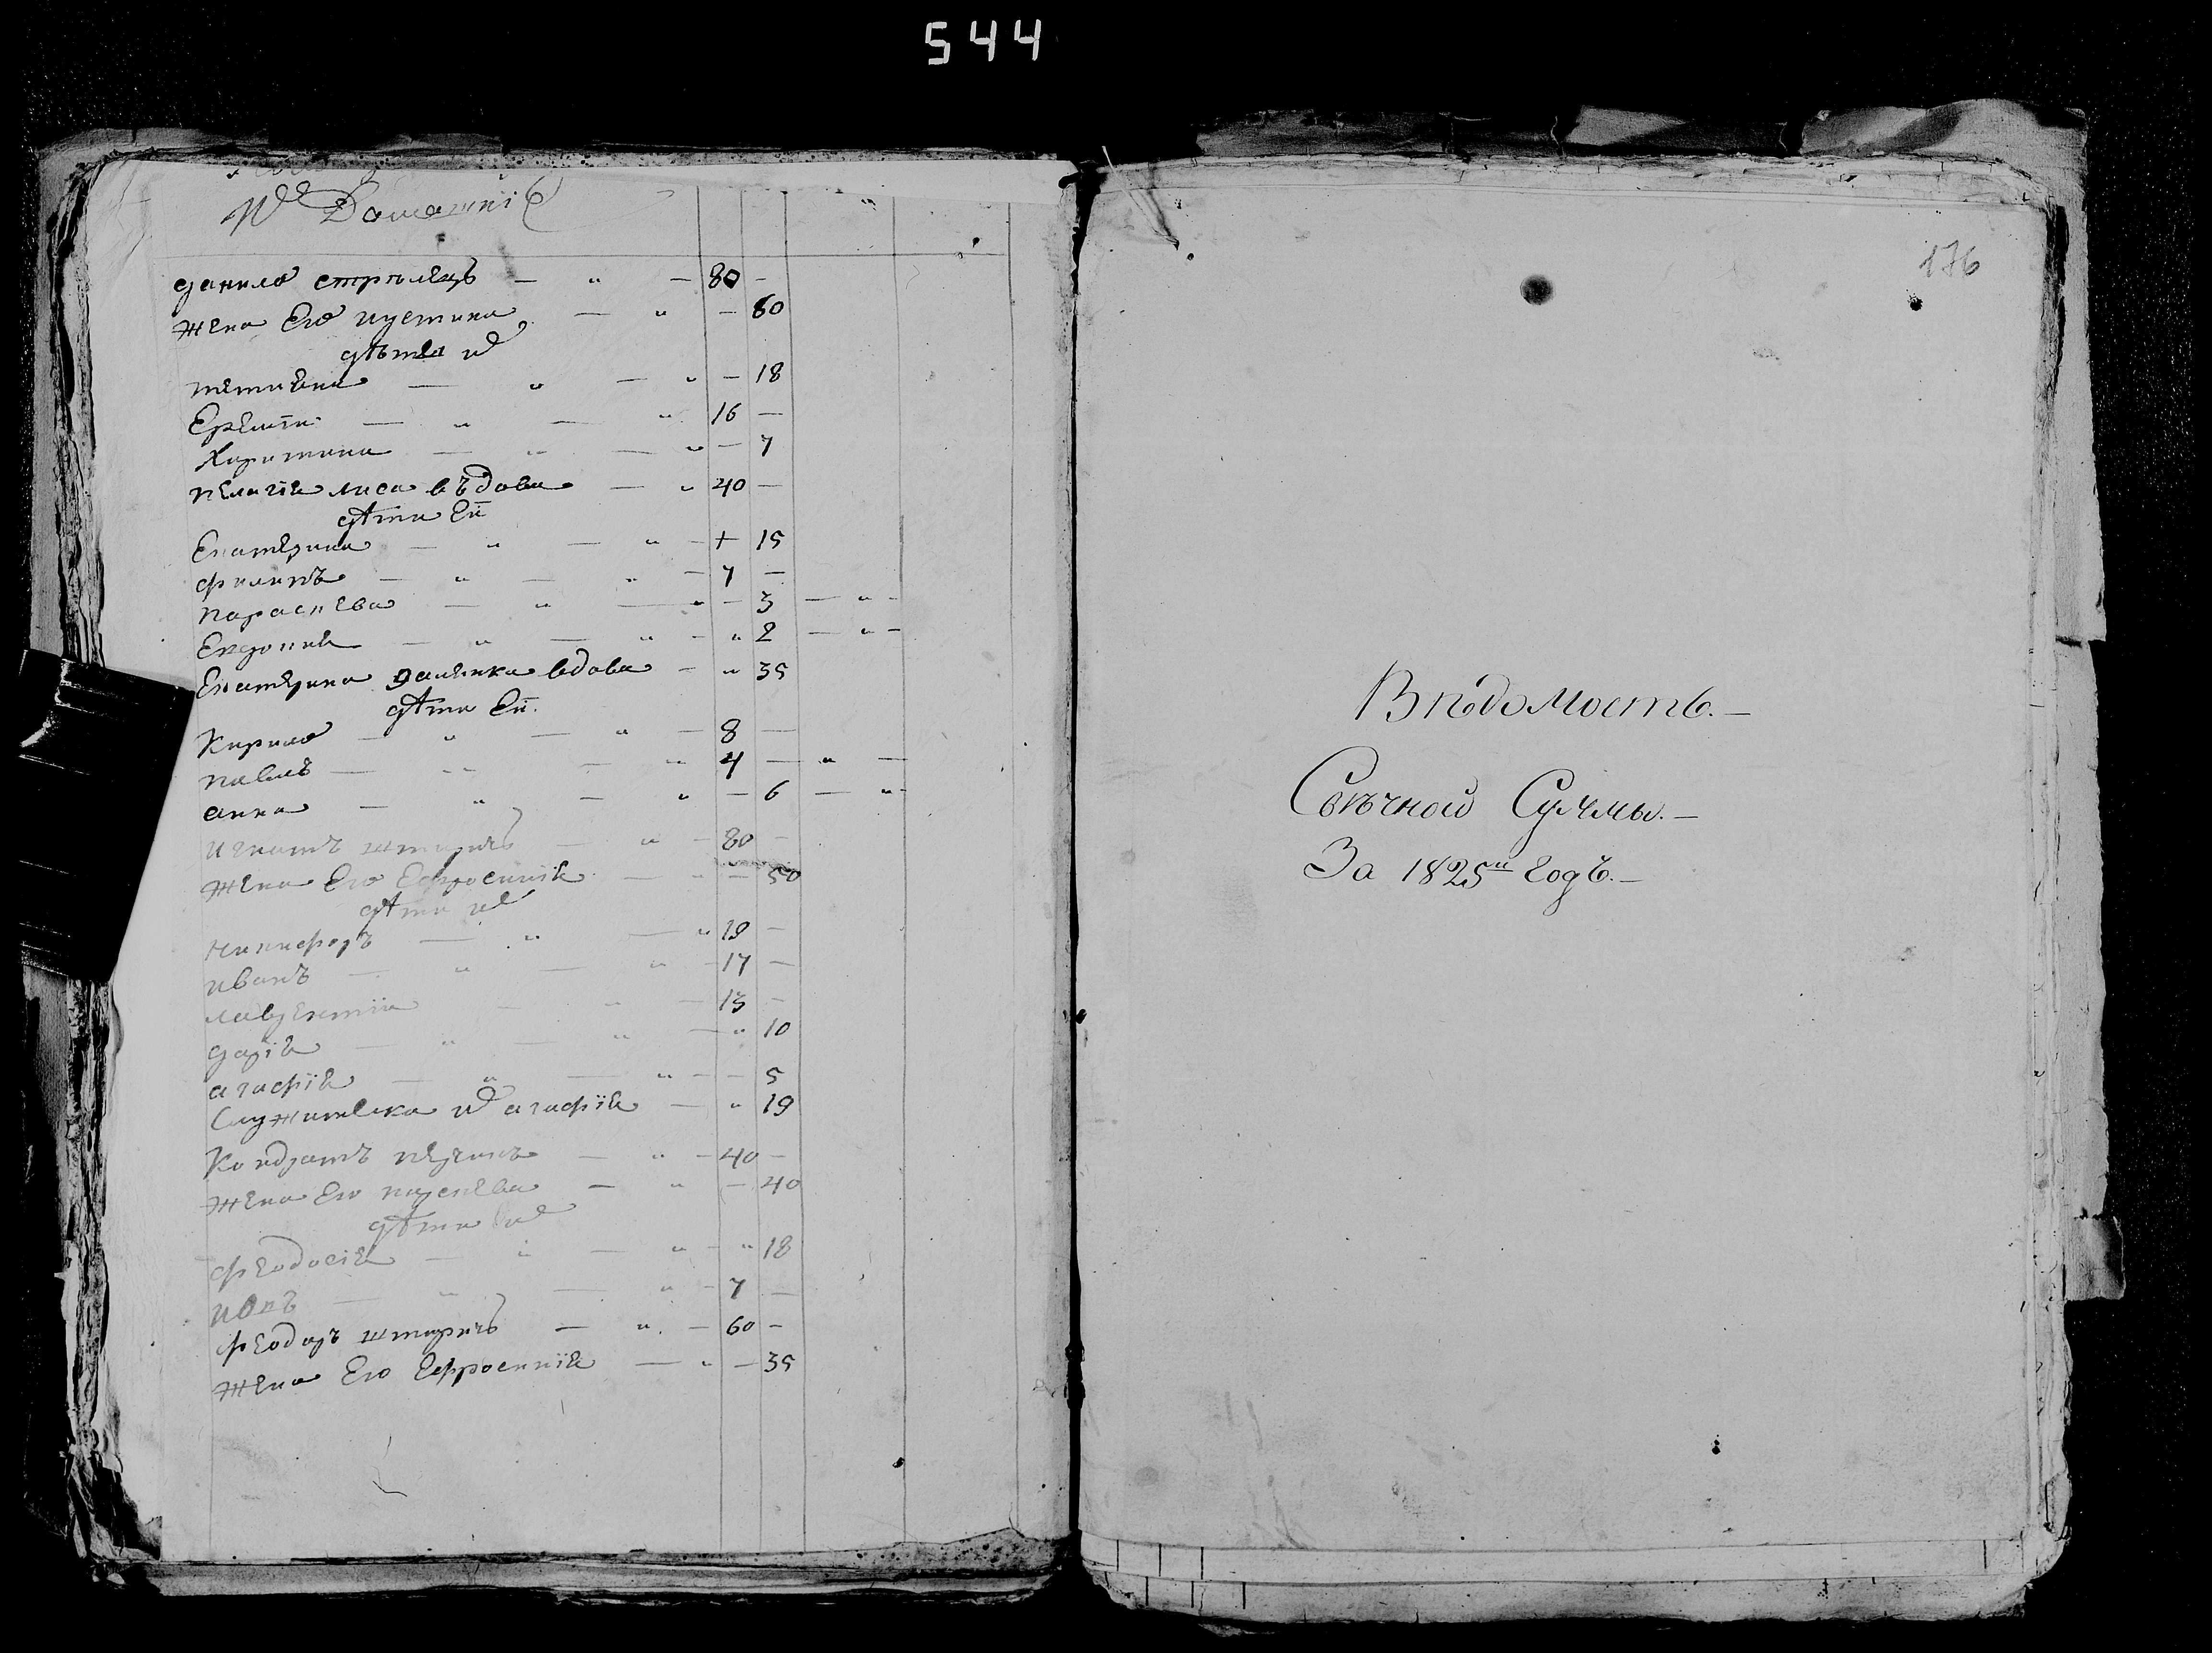 544
их Домашніе
данило стрѣлецъ — " — 80 —
жена Его иустина — " — 60
дѣтьи их
тетиена — " — " — 18
Еремѣи — " — " 16 —
Харитина — " — " — 7
пелагіе лиса въдова — " 40 —
дѣти Еи
Екатерина — " — " — + 15
филипъ — " — " — 7 —
параскева — " — " — 3 — " —
Евдокие — " — " — " 2 — " —
Екатерина вдова — " 35
дѣти Еи
Кирило — " — " — 8 —
павелъ — " — " 4 — " —
анна — " — " — 6 — " —
игнатъ штирпъ — " — 80 —
жена Его Ефросиніе — " — 50
дѣти их
никифоръ — " — " 19 —
иванъ — " — " — 17 —
лаврентіи — " — 13 —
даріе — " — " — " 10
агафіе — " — " — — 5
Служителка их агафіе — " 19
Кондратъ — " — 40 —
жена Его параскева — " — 40
дѣти их
феодосіе — " — " — " 18
иовъ — " — " — 7 —
феодоръ штирпъ — " — 60 —
жена Его Ефросиніе — " — 35
176
Вѣдомость. —
Свѣчной Суммы. —
За 1825й годъ. —